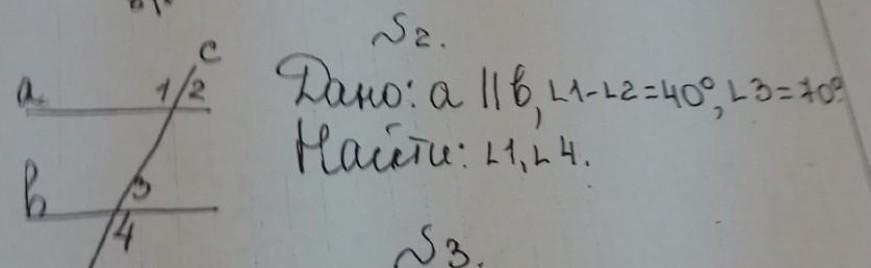 №2.
c
a 1 2
Дано: a || b, ∠1-∠2=40°, ∠3=70°.
Найти: ∠1, ∠4.
3
b
4
№3.